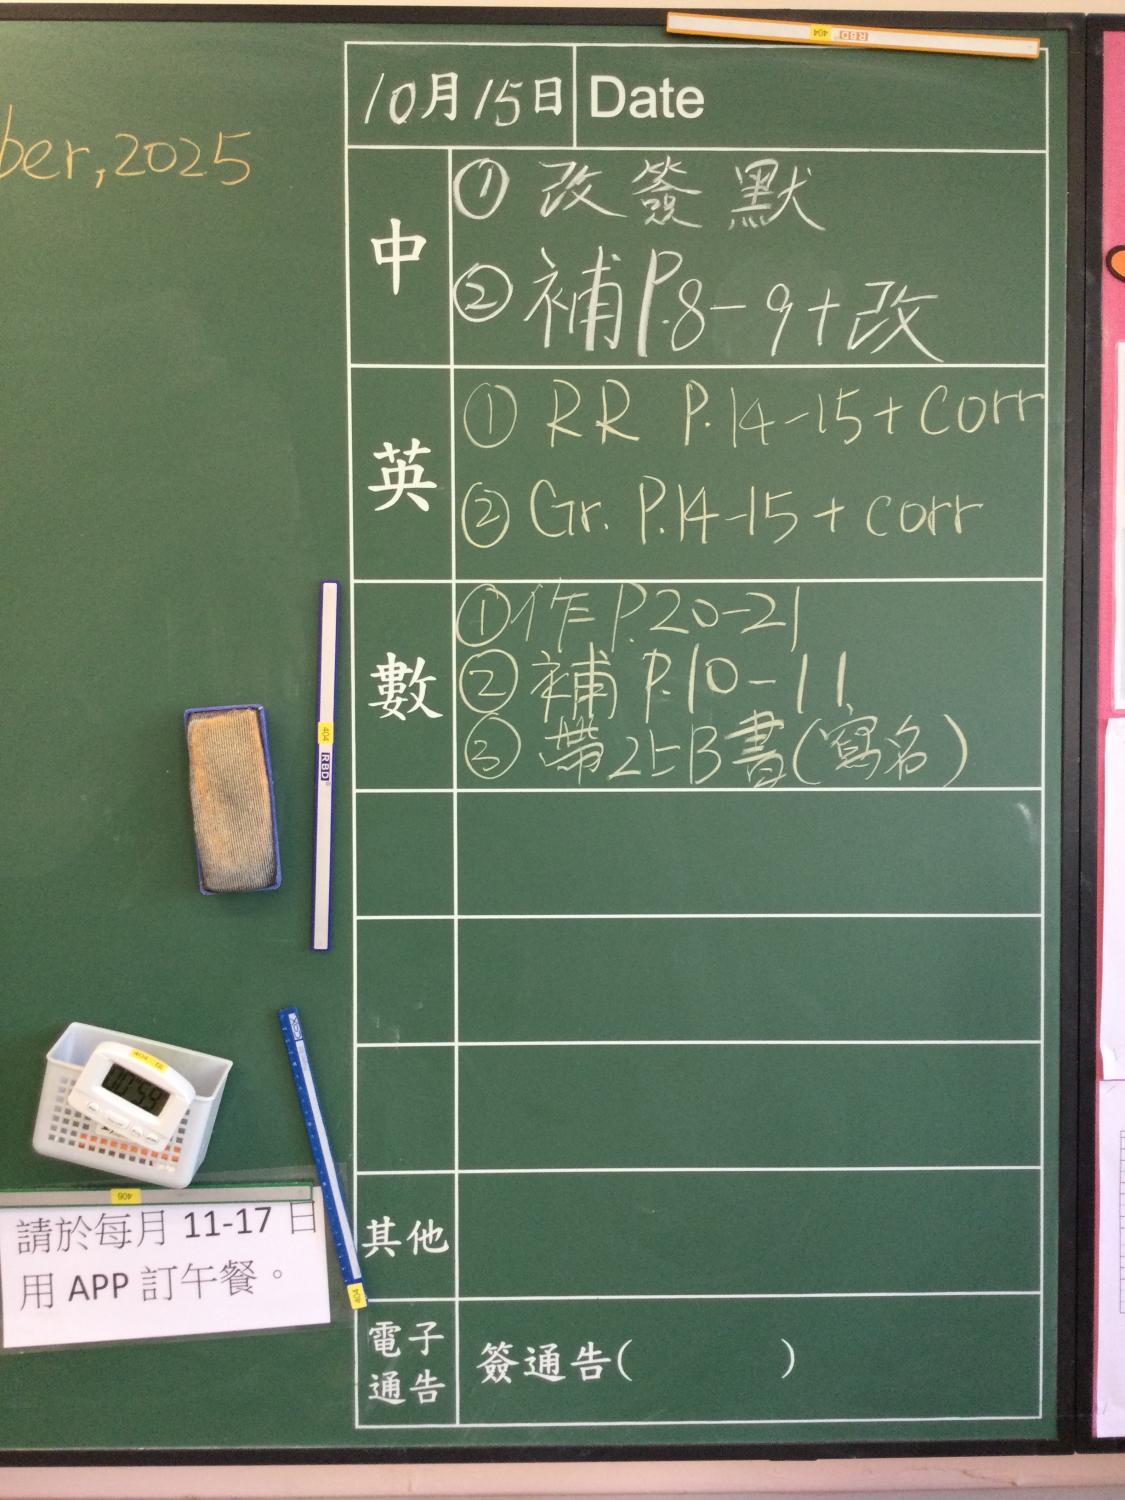 ber, 2025
10月15日 Date
中
① 改簽默
② 補P.8-9+改
英
① RR P.14-15+corr
② Gr. P.14-15+corr
數
① 作P.20-21
② 補P.10-11
③ 帶2上B書(寫名)
其他
電子
通告
簽通告( )
請於每月 11-17 日
用 APP 訂午餐。
404 RBD
404 RBD
404
406
404